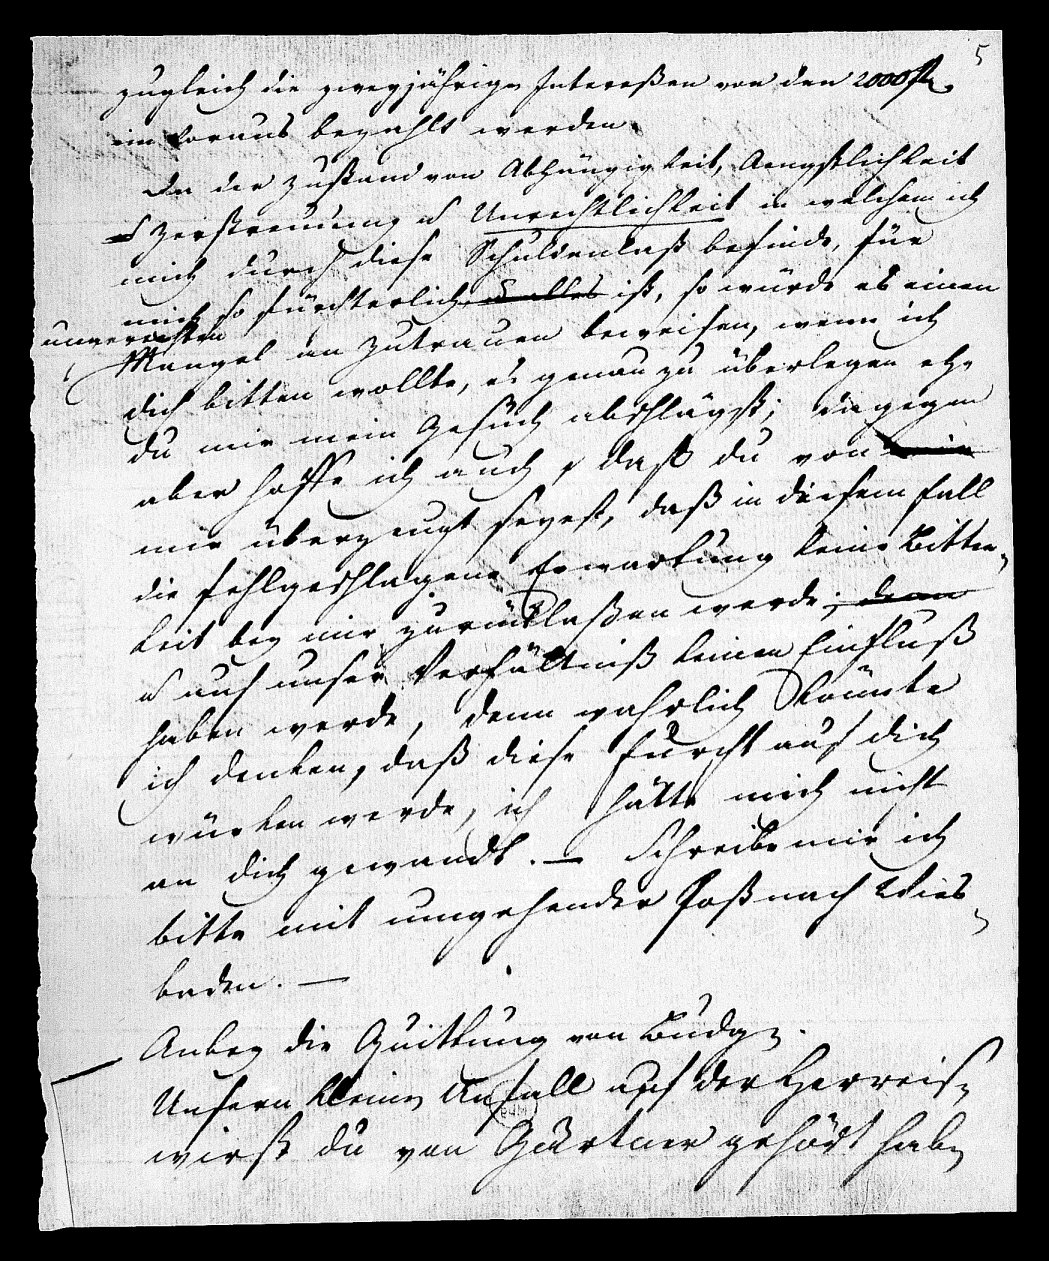 5
zugleich die zweyjährigen Interessen von den 2000 fl.
im Voraus bezahlt werden.
Da der Zustand von Abhängigkeit, Aengstlichkeit
u Zerstreuung u Unrechtlichkeit in welchem ich
mich durch diese Schuldenlast befinde, für
mich so fürchterlich u alles ist, so würde es einen
ungerechten
Mangel an Zutrauen beweisen, wenn ich
dich bitten wollte, es genau zu überlegen ehe
du mir mein Gesuch abschlägst; dagegen
aber hoffe ich auch, daß du von
mir überzeugt seyest, daß in diesem Fall
die fehlgeschlagene Erwartung keine Bitter-
keit bey mir zurücklaßen werde, denn
u auf unser Verhältniß keinen Einfluß
haben werde, denn wahrlich könnte
ich denken, daß diese Furcht auf dich
würken werde, ich hätte mich nicht
an dich gewandt. — Schreibe mir ich
bitte mit umgehender Post nach Wies-
baden. —
Anbey die Quittung von
Unsern kleinen Unfall auf der Herreise
wirst du von Gärtner gehört haben